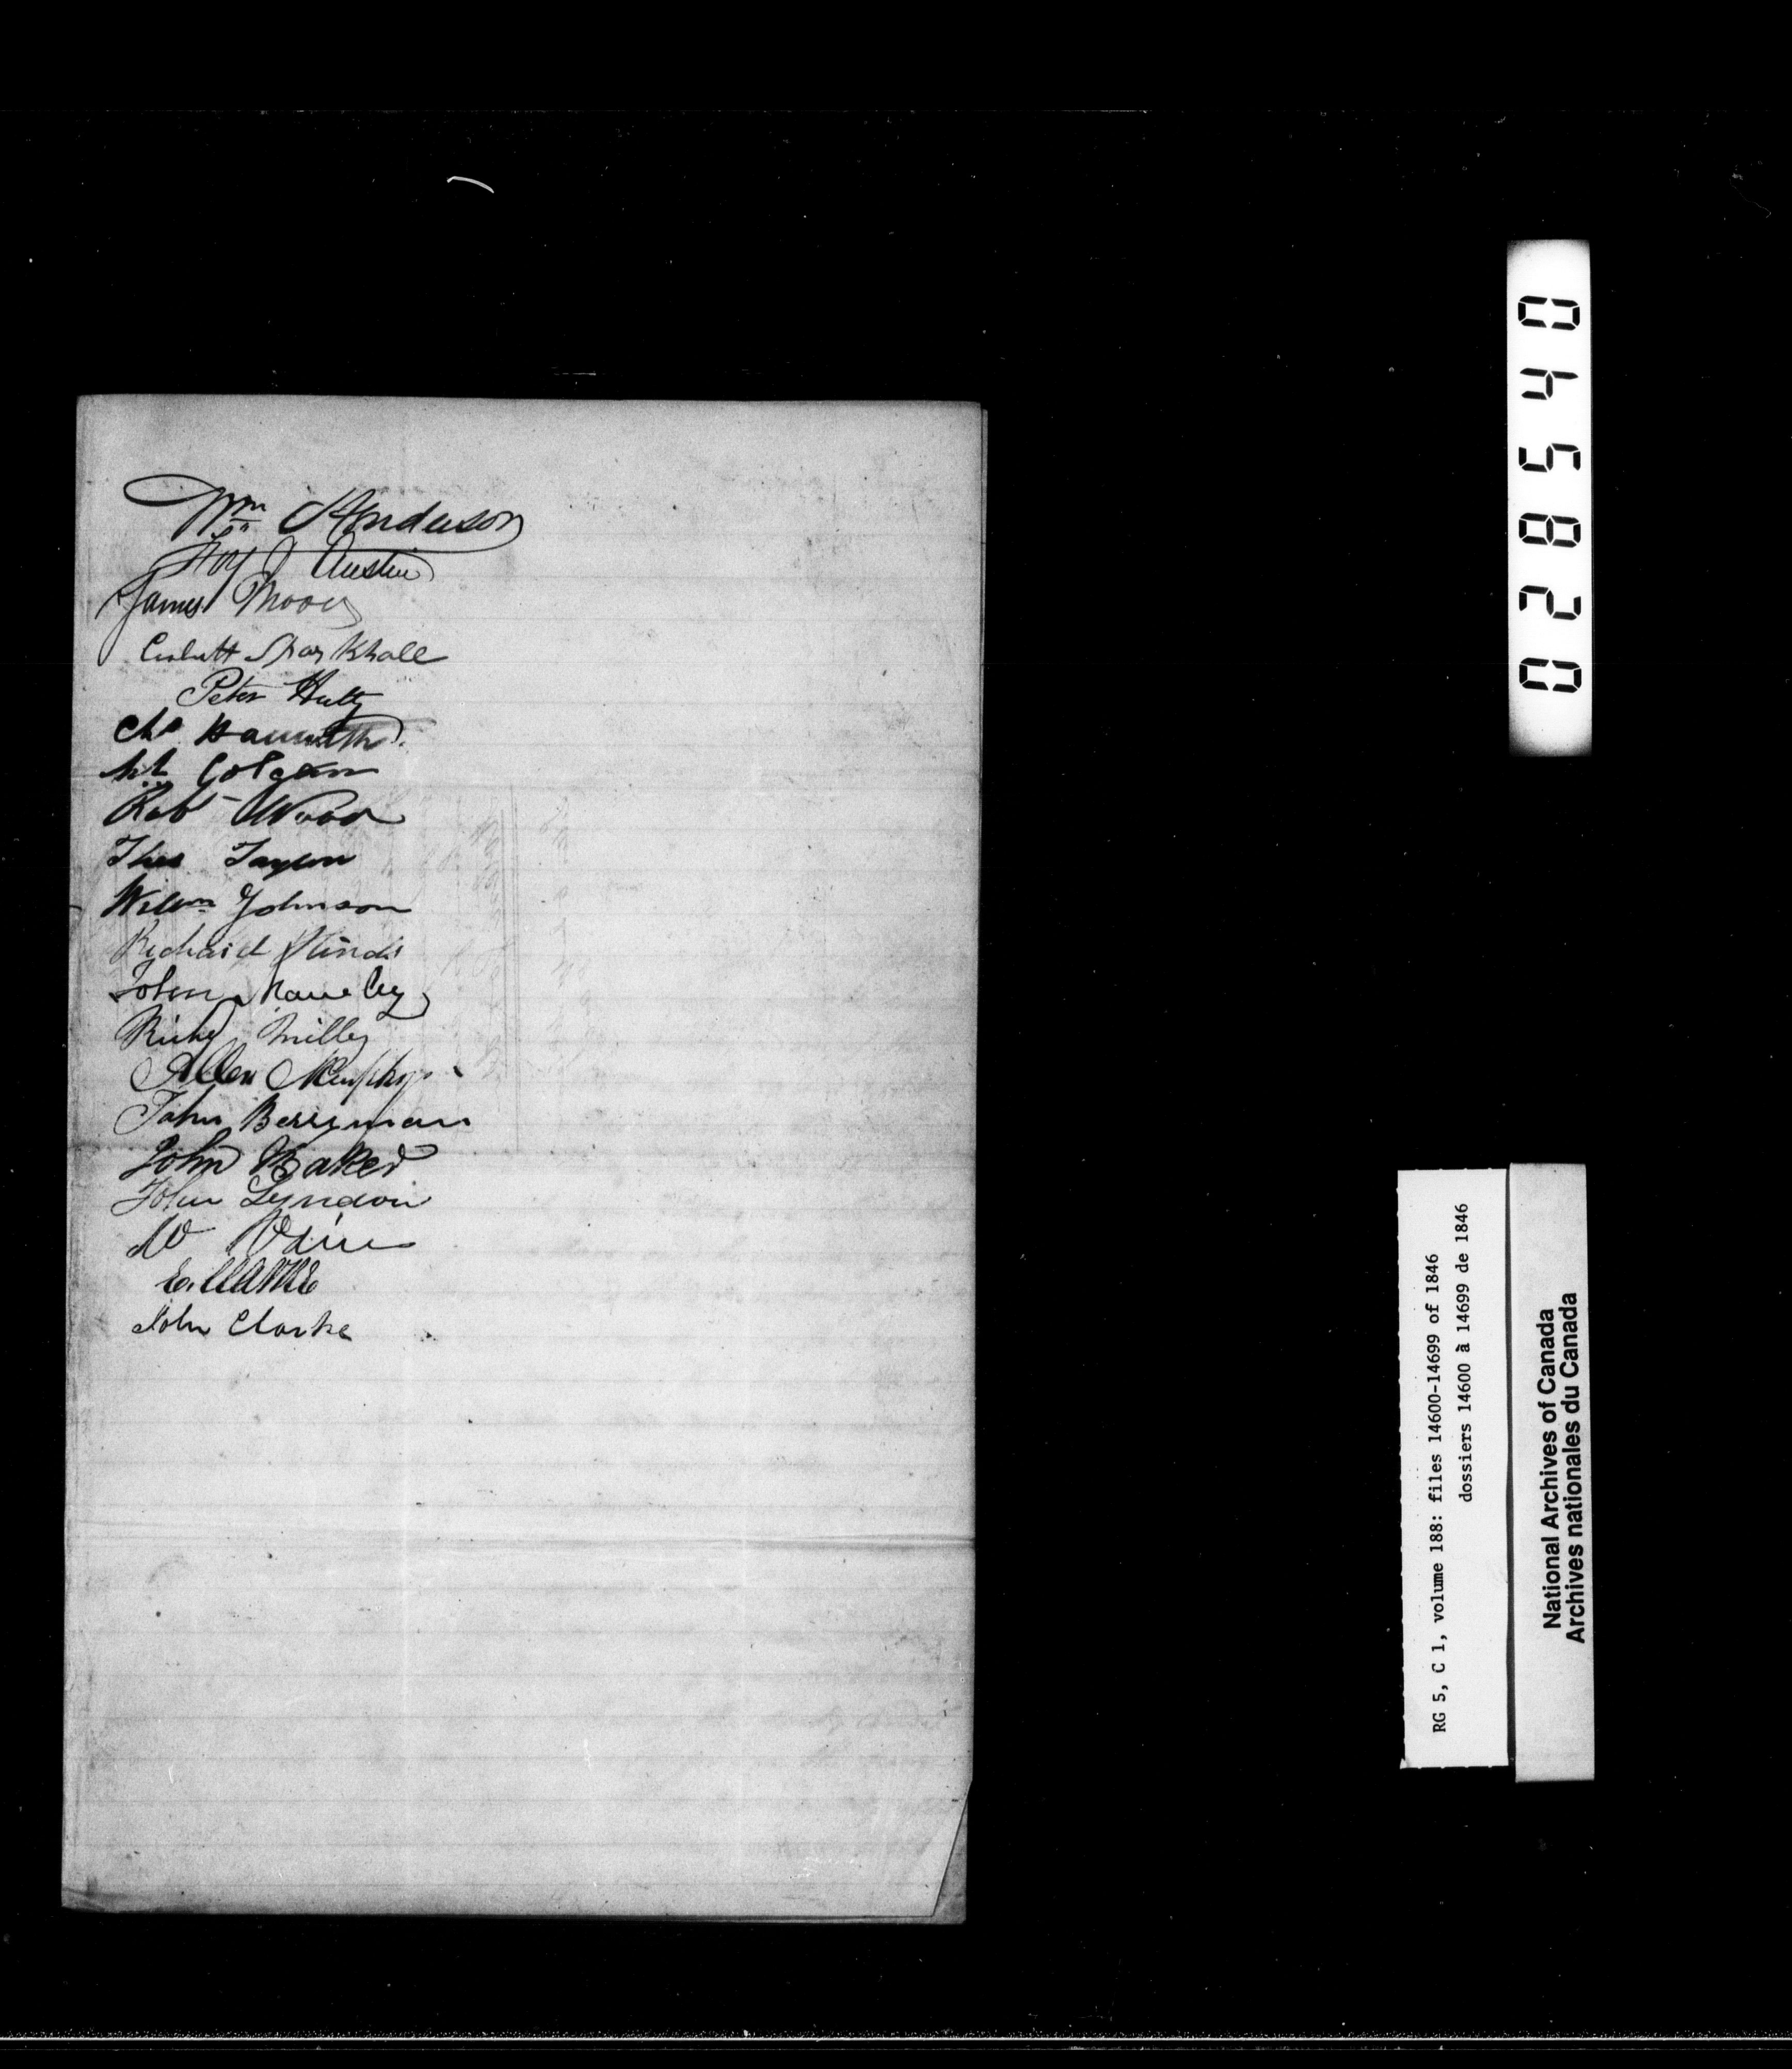 Wm Anderson
Austin
James Moor
Markhall
Peter
Chs
Golgan
Robt Wood
Thos Taylor
Willm Johnson
Richard Hinds
John
Richd Miller
Allen Murphy
John Berryman
John Baker
John Lyndon
W
E. Clarke
John Clarke
028540
RG 5, C 1, volume 188: files 14600-14699 of 1846
dossiers 14600 à 14699 de 1846
National Archives of Canada
Archives nationales du Canada